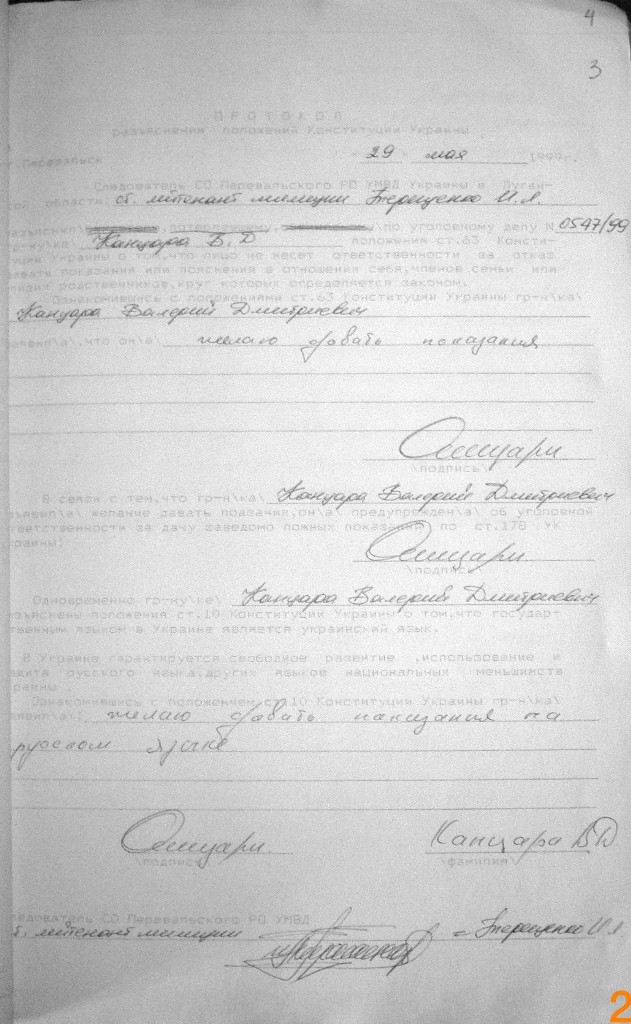 4
3
П Р О Т О К О Л
разъяснения положений Конституции Украины
г.Перевальск "29" мая 1999г.
Следователь СО Перевальского РО УМВД Украины в Луган-
кой области, ст. лейтенант милиции Терещенко И.А.
разъяснил потерпевшему, \по уголовному делу N 0547/99
гр-ну\ке\ Канцара В.Д положения ст.63 Консти-
туции Украины о том,что лицо не несет ответственности за отказ
давать показания или пояснения в отношении себя,членов семьи или
близких родственников,круг которых определяется законом.
Ознакомившись с положениями ст.63 Конституции Украины гр-н\ка\
Канцара Валерий Дмитриевич
заявил\а\,что он\а\ желаю давать показания
\подпись\
В связи с тем,что гр-н\ка\ Канцара Валерий Дмитриевич
заявил\а\ желание давать показания,он\а\ предупрежден\а\ об уголовной
ответственности за дачу заведомо ложных показаний по ст.178 УК
Украины:
\подпись\
Одновременно гр-ну\ке\ Канцара Валерий Дмитриевич
разъяснены положения ст.10 Конституции Украины о том,что государ-
ственным языком в Украине является украинский язык.
В Украине гарантируется свободное развитие ,использование и
защита русского языка,других языков национальных меньшинств
Украины .
Ознакомившись с положением ст.10 Конституции Украины гр-н\ка\
заявил\а\: желаю давать показания на
русском языке
Канцара ВД
\подпись\ \фамилия\
Следователь СО Перевальского РО УМВД
ст. лейтенант милиции Терещенко И.А.
2